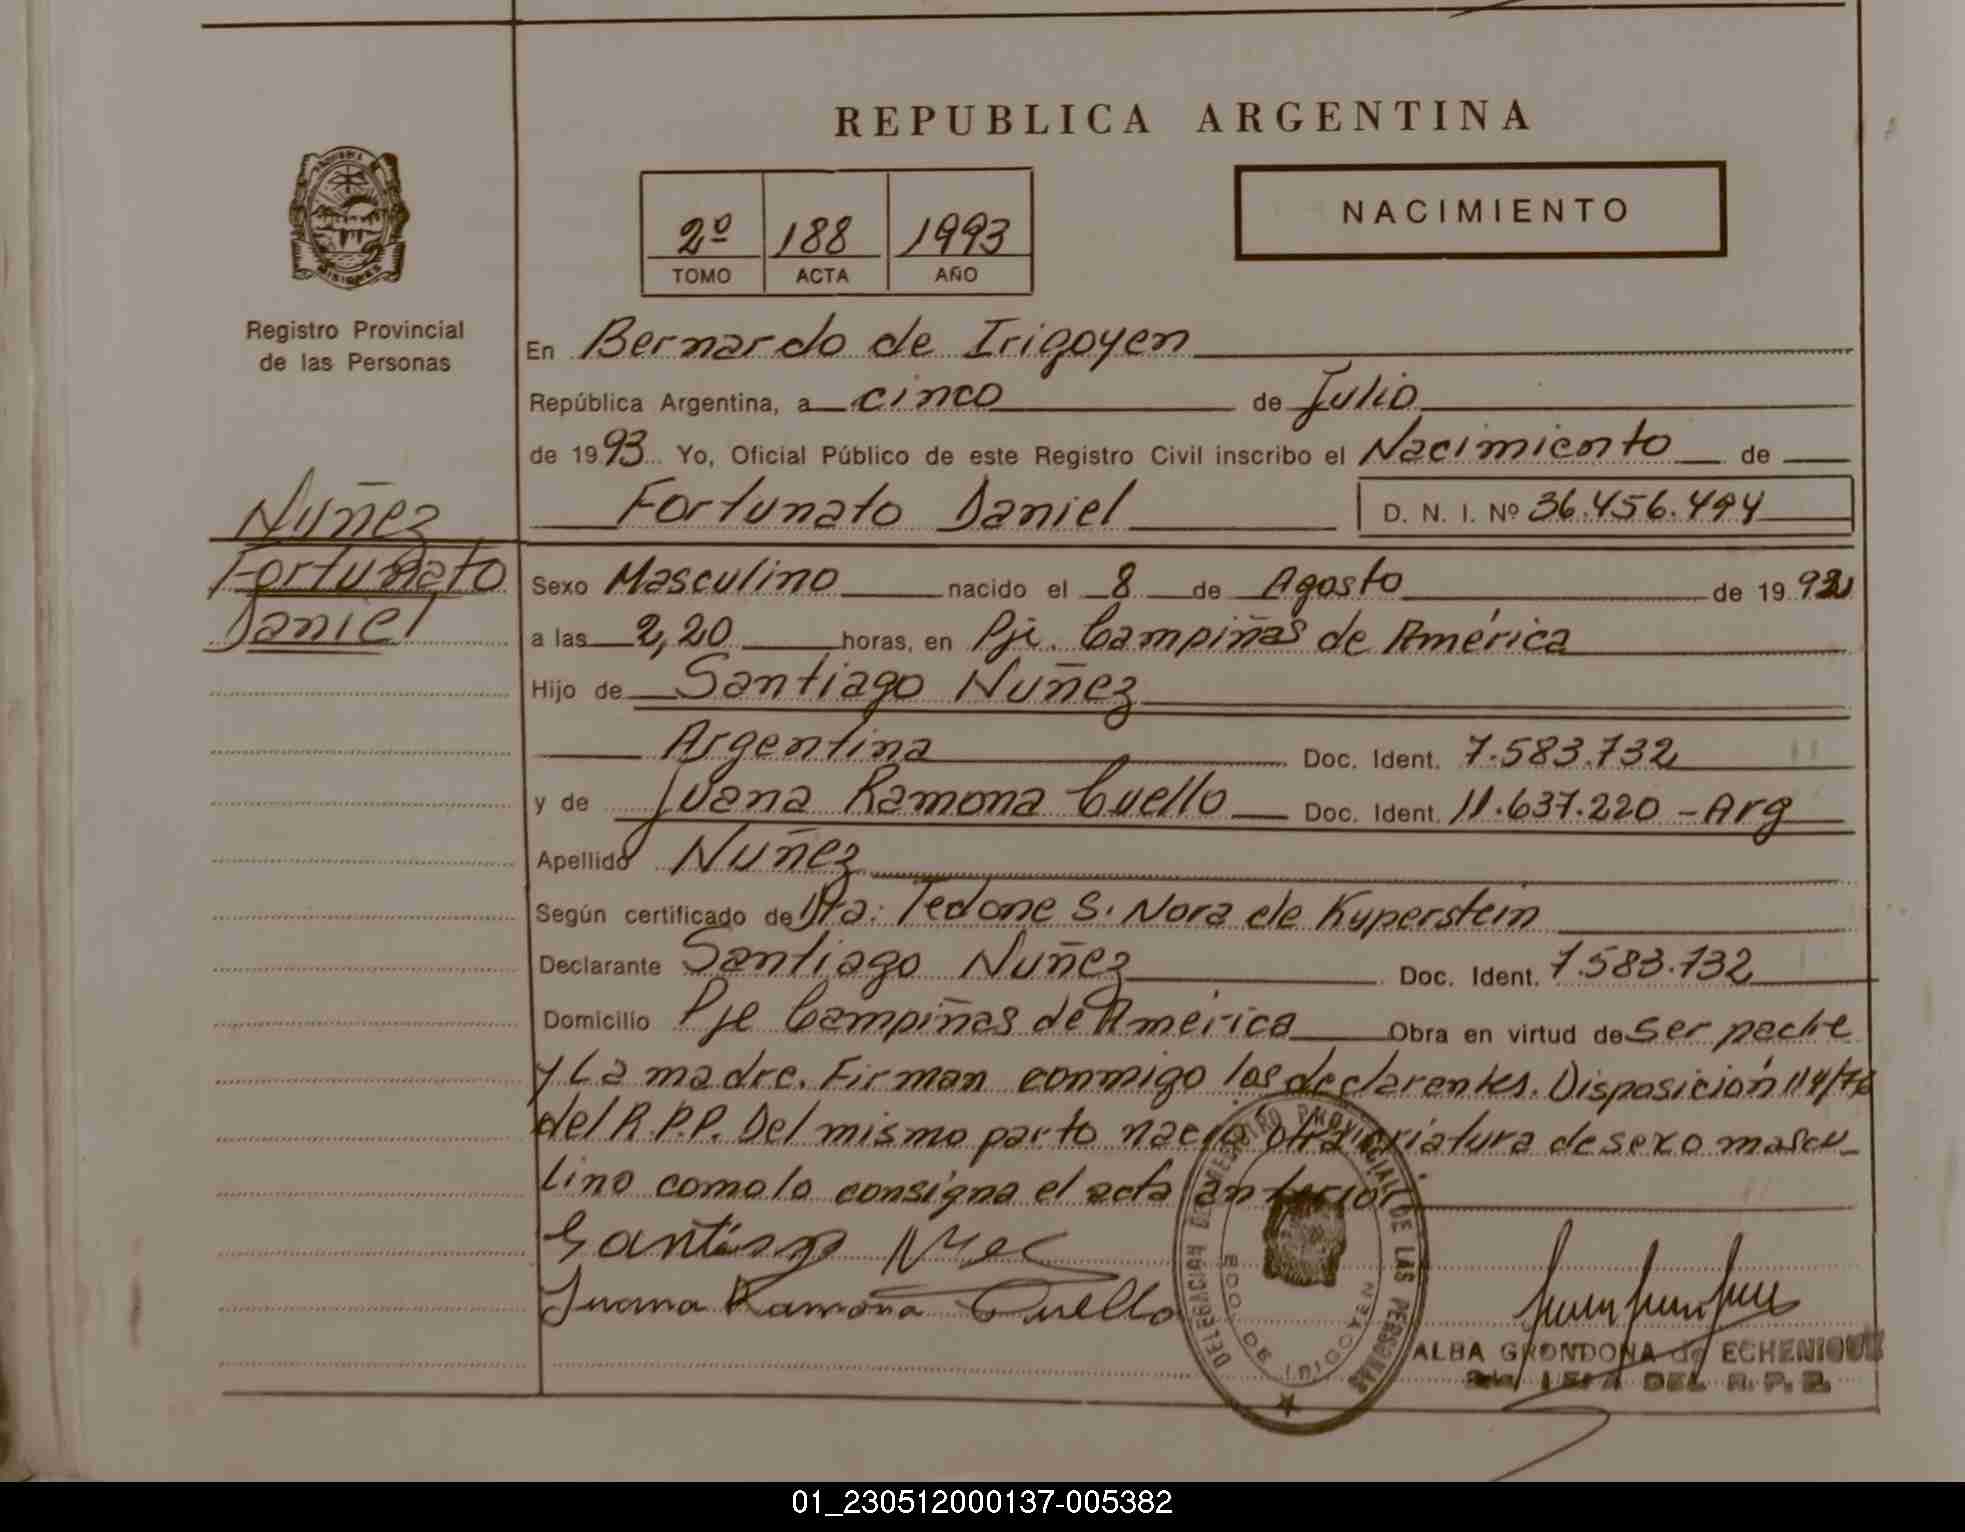 REPUBLICA ARGENTINA
2º 188 1993
TOMO ACTA AÑO
NACIMIENTO
MISIONES
Registro Provincial
de las Personas
Nuñez
Fortunato
Daniel
En Bernardo de Irigoyen
República Argentina, a cinco de Julio
de 1993 Yo, Oficial Público de este Registro Civil inscribo el Nacimiento de
Fortunato Daniel D. N. I. Nº 36.456.494
Sexo Masculino nacido el 8 de Agosto de 1992
a las 2,20 horas, en Pje. Campiñas de América
Hijo de Santiago Nuñez
Argentina Doc. Ident. 7.583.732
y de Juana Ramona Cuello Doc. Ident. 11.637.220 - Arg
Apellido Nuñez
Según certificado de Dra: Tedone S. Nora de Kyperstein
Declarante Santiago Nuñez Doc. Ident. 7.583.732
Domicilio Pje Campiñas de América Obra en virtud de ser padre
y la madre. Firman conmigo los declarentes. Disposición 114/76
del R.P.P. Del mismo parto nacio otra criatura de sexo mascu_
lino como lo consigna el acta anterior
Santiago Nuñez
Juana Ramona Cuello
DELEGACION DEL REGISTRO PROVINCIAL DE LAS PERSONAS
BDO. DE IRIGOYEN
ALBA GRONDONA de ECHENIQUE
JEFA DEL R. P. P.
01_230512000137-005382